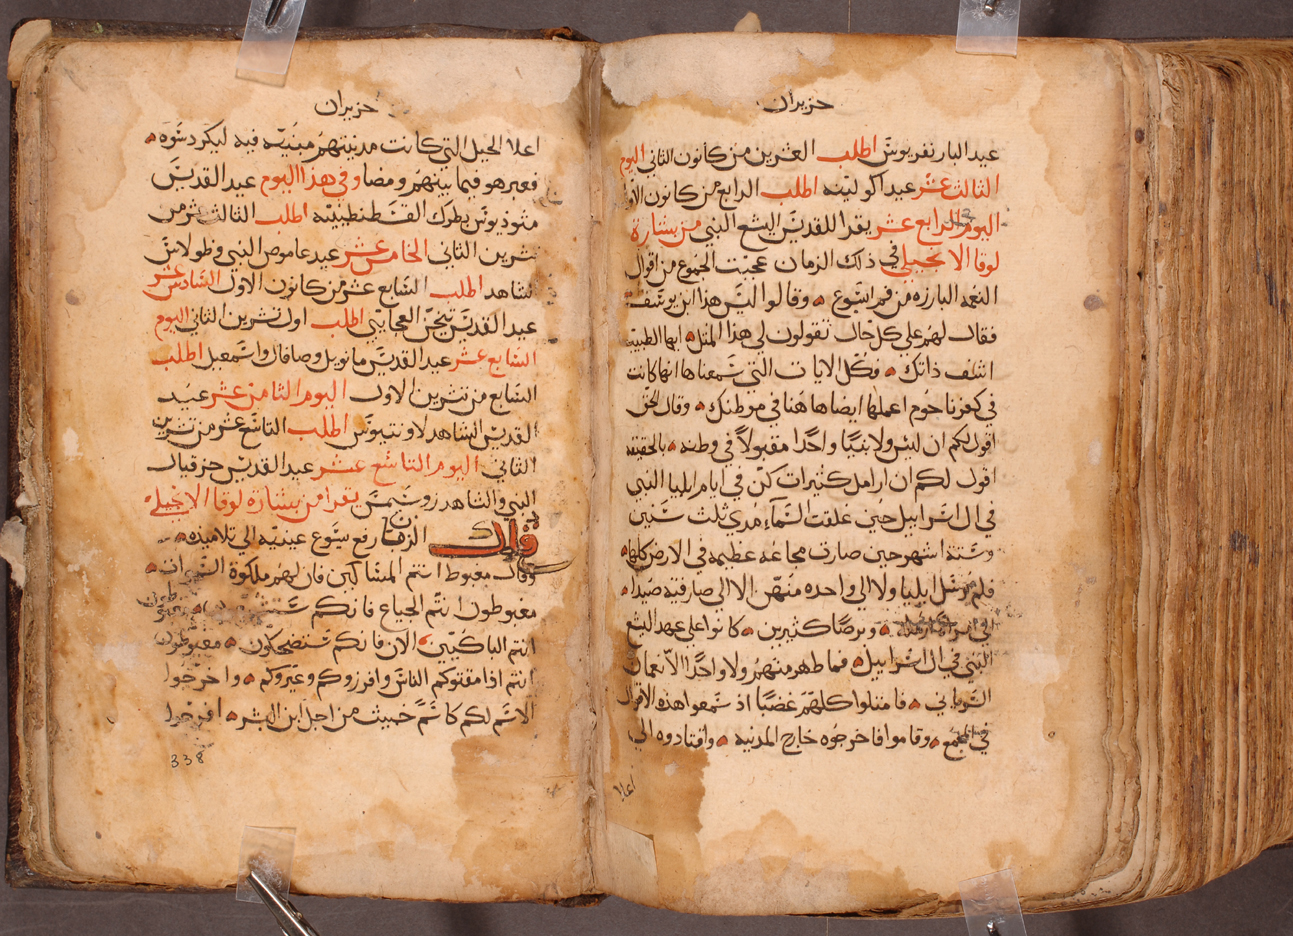 حزيران
عيد البار نفريوس اطلب العشرين من كانون الثاني اليوم
الثالث عشر عيد اكولينه اطلب الرابع من كانون الاول
اليوم الرابع عشر يقرا للقديس اليشع النبي من بشارة
لوقا الانجيلي في ذلك الزمان عجبت الجموع من اقوال
النعمه البارزه من فم ايسوع وقالوا اليس هذا ابن يوسف
فقال لهم على كل حال تقولون لي هذا المثل ايها الطبيب
اشف ذاتك وكل الايات التي سمعناها انها كانت
في كفرناحوم اعملها ايضا هاهنا في موطنك وقال الحق
اقول لكم ان ليس ولا نبيًا واحدًا مقبولاً في وطنه بالحقيقه
اقول لكم ان ارامل كثيرات كن في ايام ايليا النبي
في ال اسراييل حين غلقت السماء مدي ثلث سنين
وستة اشهر حين صارت مجاعه عظيمه في الارض كلها
فلم يرسل ايليا ولا الي واحده منهن الا الي صارفية صيدا
الي امراه ارمله وبرصًا كثيرين كانوا علي عهد اليشع
النبي في ال اسراييل فما طهر منهم ولا واحدًا الا نعمان
السرياني فامتلوا كلهم غضبًا اذ سمعوا هذه الاقوال
في المجمع وقاموا فاخرجوه خارج المدينه واقتادوه الي
اعلا
حزيران
اعلا الجبل التي كانت مدينتهم مبنيه فيه ليكردسوه
فعبر هو فيما بينهم ومضا وفي هذا اليوم عيد القديس
مثوديوس بطرك القسطنطينيه اطلب الثالث عشر من
تشرين الثاني الخامس عشر عيد عاموص النبي وطولاس
الشاهد اطلب السابع عشر من كانون الاول السادس عشر
عيد القديس تيخن العجايبي اطلب اول تشرين الثاني اليوم
السابع عشر عيد القديس مانويل وصافال واسمعيل اطلب
السابع من تشرين الاول اليوم الثامن عشر عيد
القديس الشاهد لاونتيوس اطلب التاسع عشر من تشرين
الثاني اليوم التاسع عشر عيد القديس حزقيال
النبي والشاهد زوسيمس يقرا من بشارة لوقا الانجيلي
في ذلك الزمان رفع يسوع عينيه الي تلاميذه
وقال مغبوط انتم المساكين فان لهم ملكوة السموات
مغبوطون انتم الجياع فانكم
انتم الباكيين الان فانكم ستضحكون مغبوطون
انتم اذا مقتوكم الناس وافرزوكم وعيروكم واخرجوا
الاسم لكم كاسم خبيث من اجل ابن البشر افرحوا
338